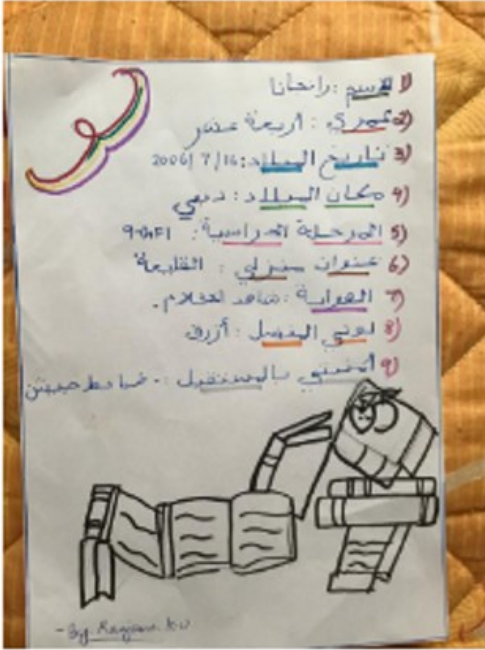 1) الاسم : رانجانا
2) عمري : أربعة عشر
3) تاريخ الميلاد : 2006/7/16
4) مكان الميلاد : دبي
5) المرحلة الدراسية : 9-GF1
6) عنوان منزلي : القليعة
7) الهواية : شاهد لافلام .
8) لوني المفضل : أزرق
9) أمنيتي بالمستقبل :-
-By. Ranjana.